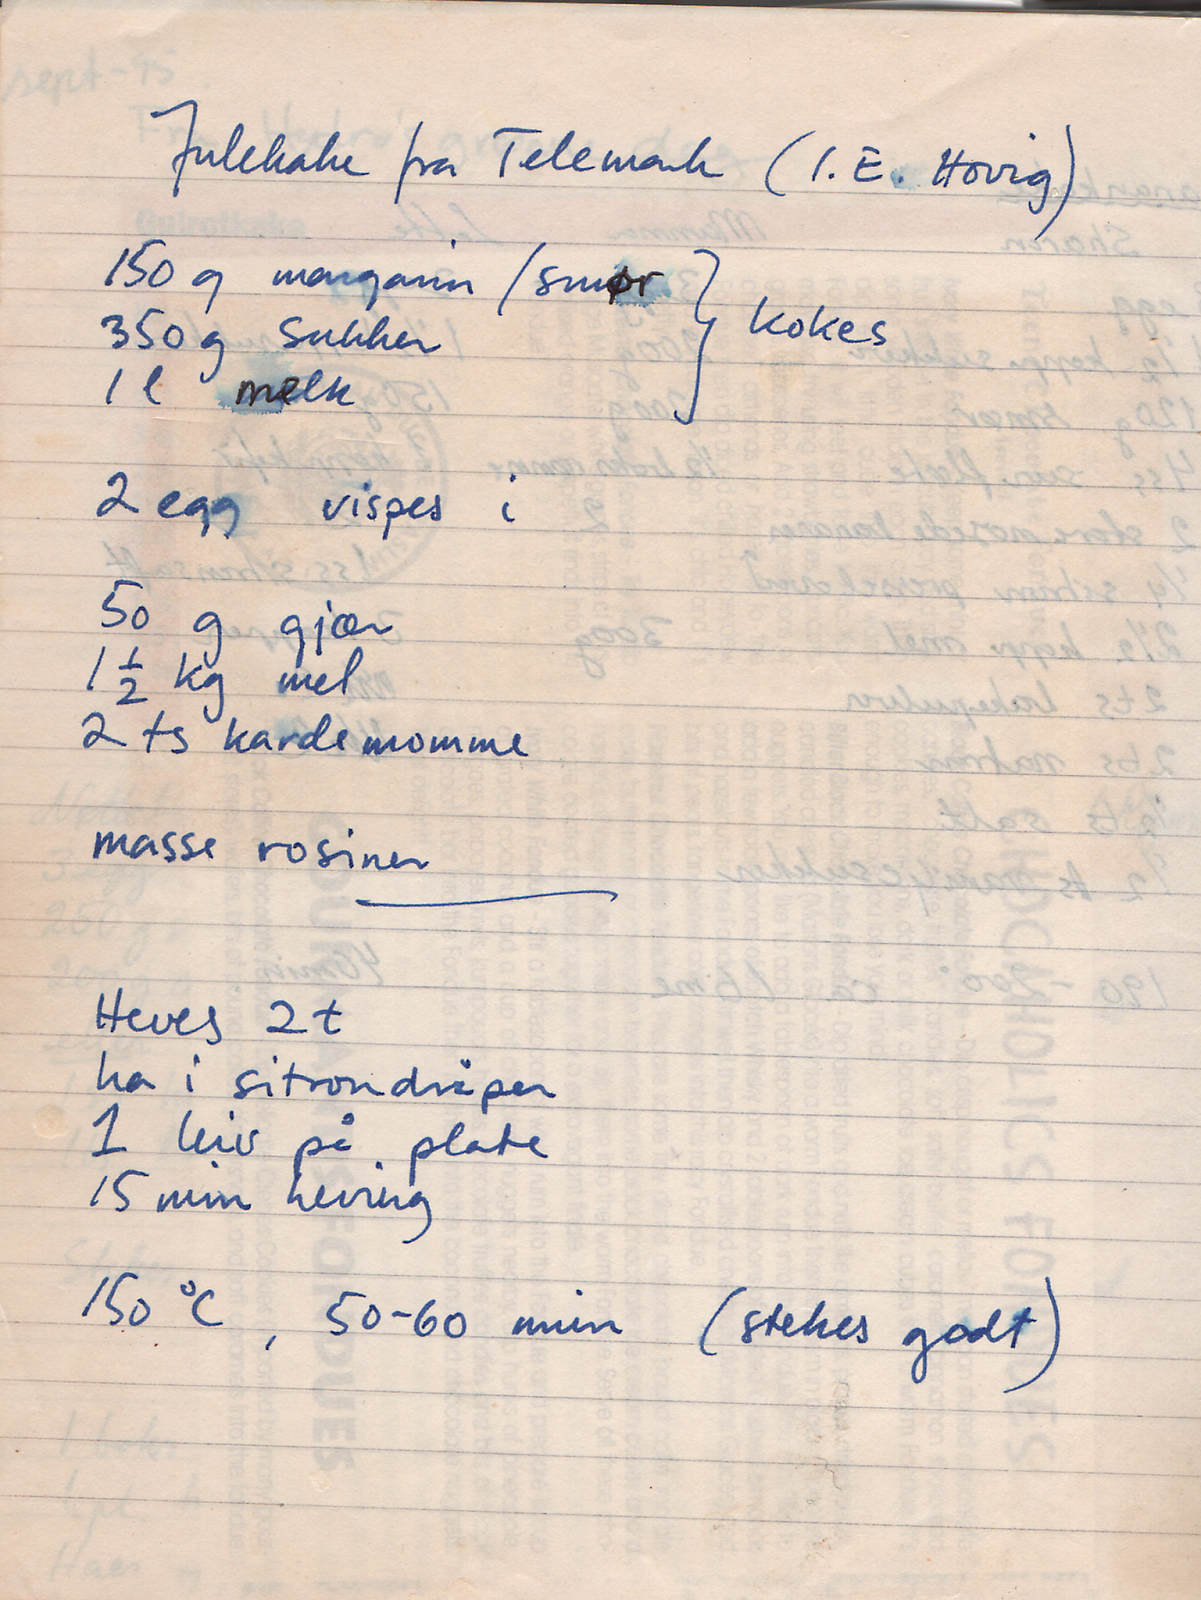 Julekake fra Telemark (I. E. Hovig)
150 g margarin / smør } kokes
350 g sukker
1 l melk
2 egg vispes i
50 g gjær
1 1/2 kg mel
2 ts kardemomme
masse rosiner
Heves 2 t
ha i sitrondråper
1 leiv på plate
15 min heving
150 °C, 50-60 min (stekes godt)